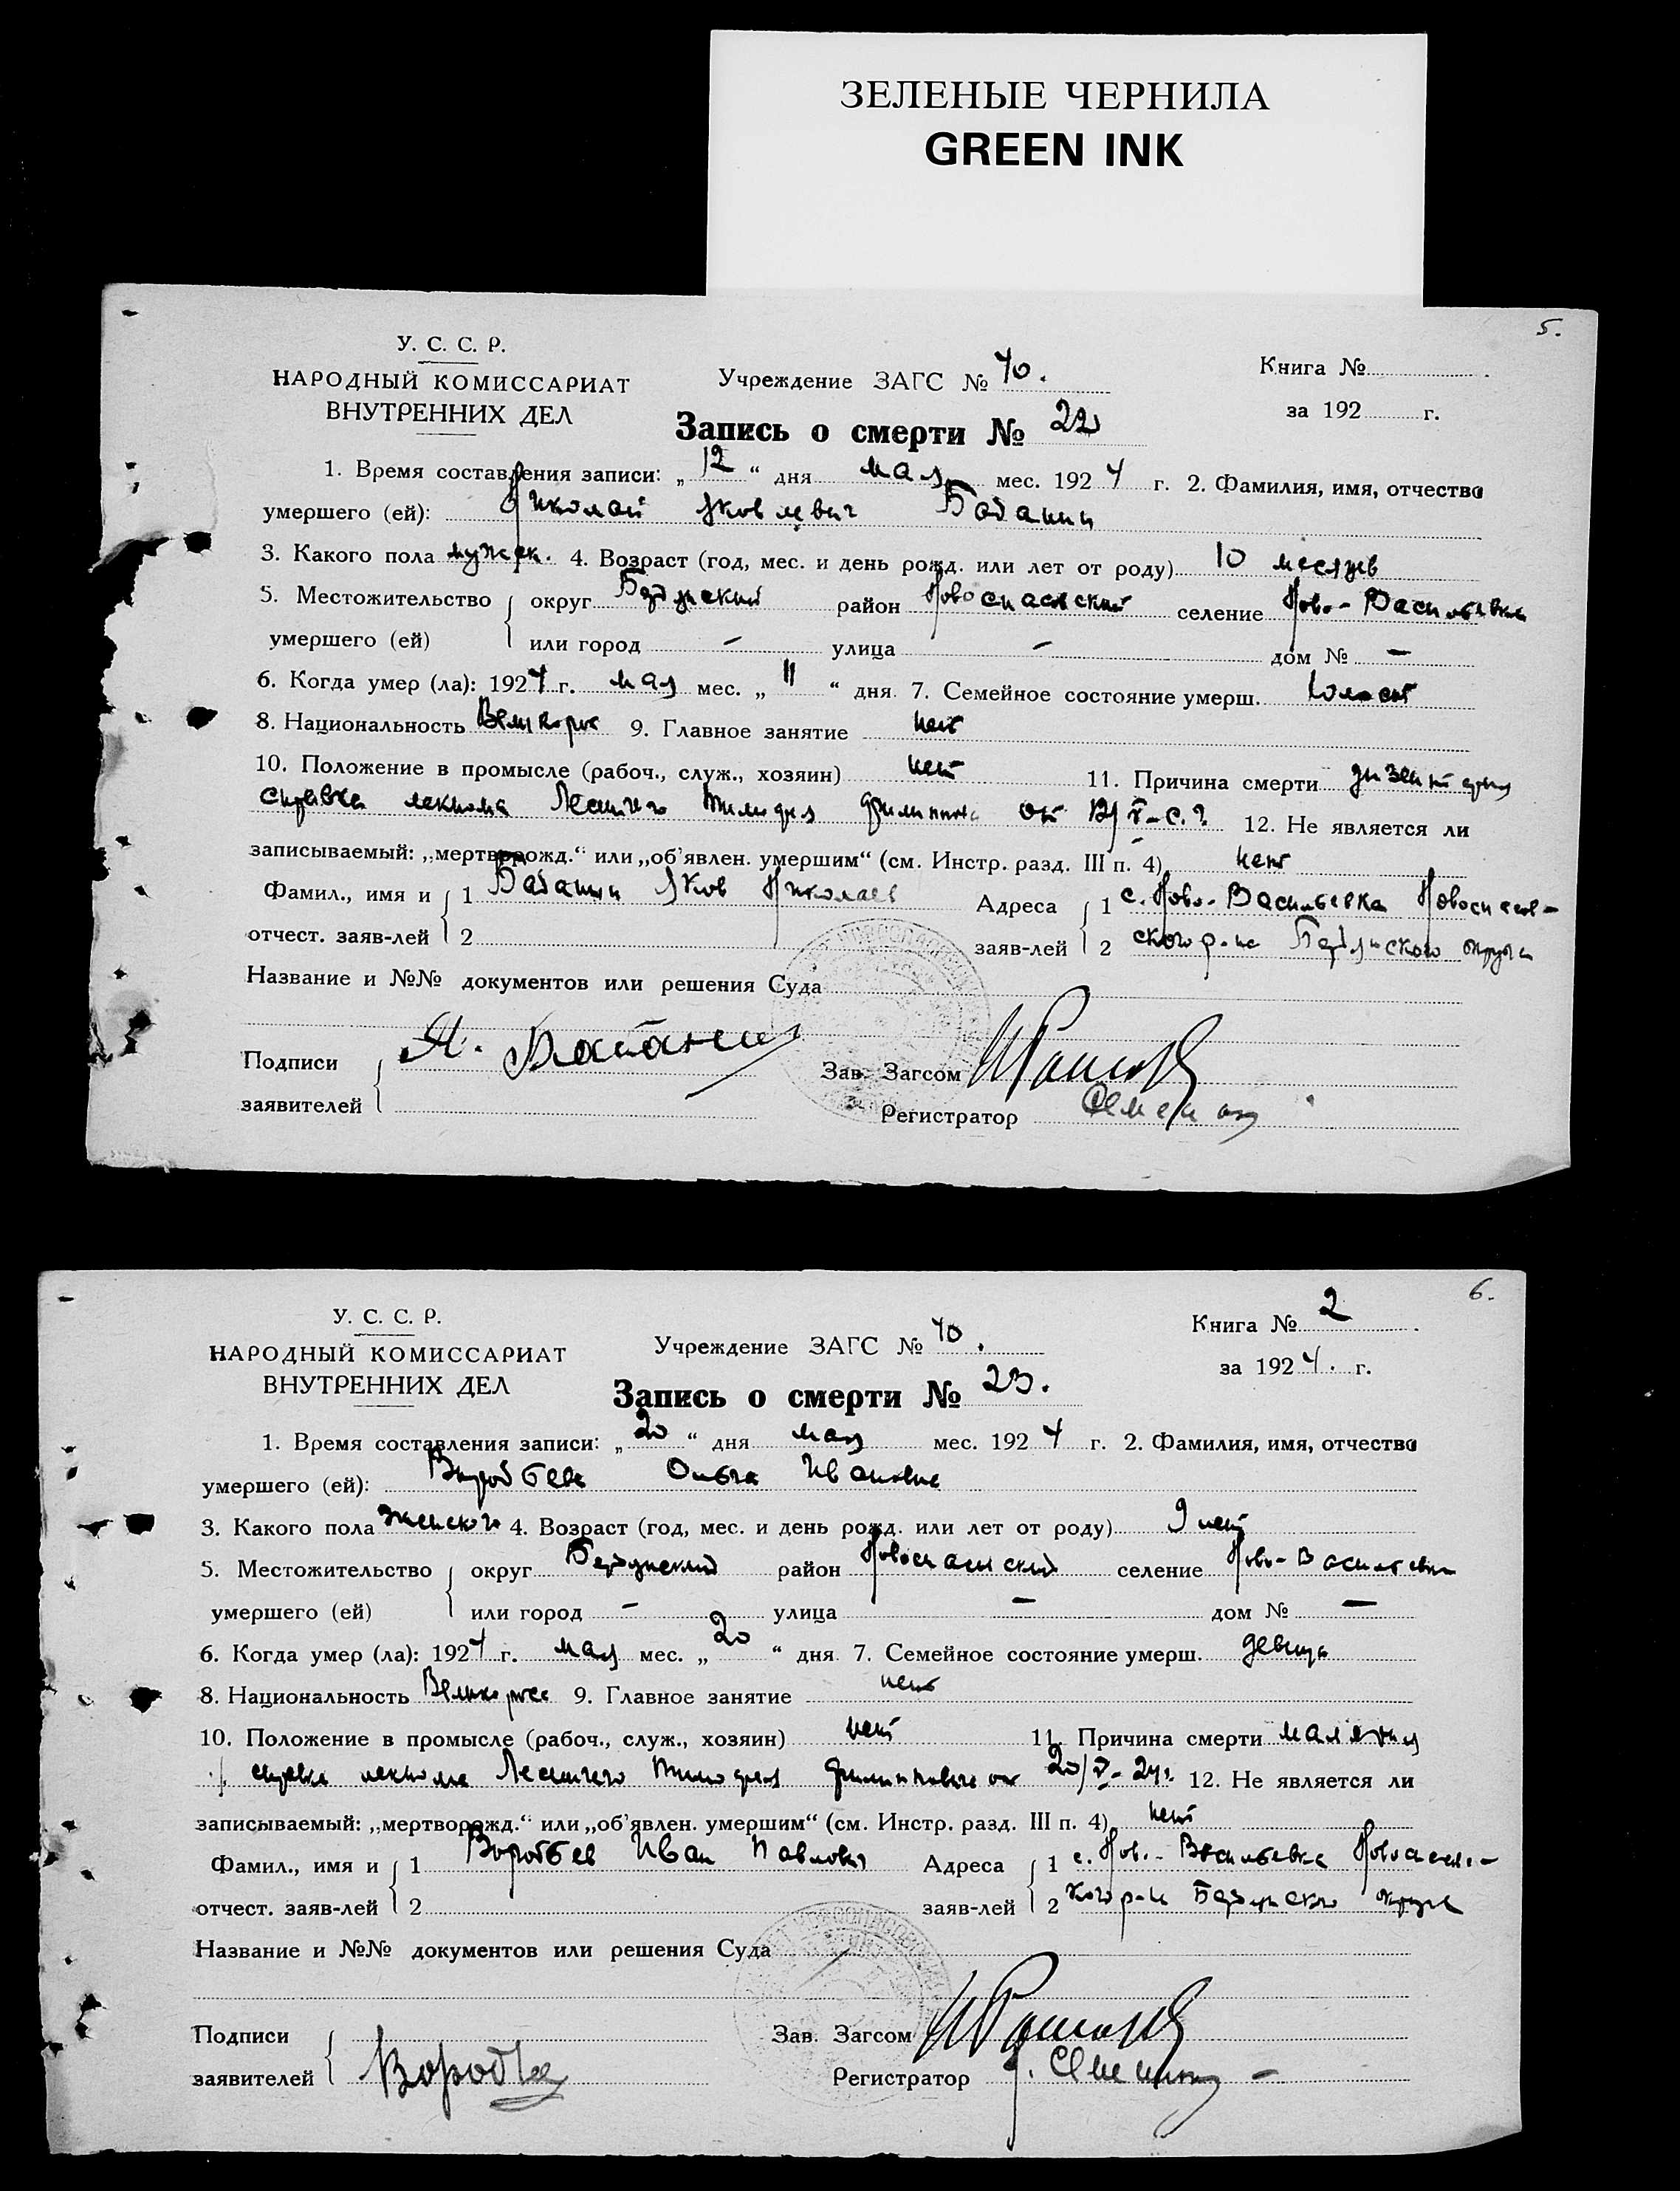 ЗЕЛЕНЫЕ ЧЕРНИЛА
GREEN INK
5.
У. С. С. Р.
НАРОДНЫЙ КОМИССАРИАТ
ВНУТРЕННИХ ДЕЛ
Учреждение ЗАГС № 40.
Книга №
за 192 г.
Запись о смерти № 22
1. Время составления записи: „ 12 “ дня мая мес. 1924 г. 2. Фамилия, имя, отчество
умершего (ей): Николай Яковлевич Баданин
3. Какого пола мужск. 4. Возраст (год, мес. и день рожд. или лет от роду) 10 месяцев
5. Местожительство округ Бердянский район Новоспасский селение Ново-Васильевка
умершего (ей) или город - улица - дом № -
6. Когда умер (ла): 1924 г. мая мес. „ 11 “ дня 7. Семейное состояние умерш. холост
8. Национальность Великорос 9. Главное занятие нет
10. Положение в промысле (рабоч., служ., хозяин) нет 11. Причина смерти дизентерия
справка лекпома от 12/V-с.г. 12. Не является ли
записываемый: „мертворожд.“ или „об'явлен. умершим“ (см. Инстр. разд. III п. 4) нет
Фамил., имя и 1 Баданин Яков Николаев Адреса 1 с. Ново-Васильевка Новоспасов-
отчест. заяв-лей 2 заяв-лей 2 ского р-на Бердянского округа
Название и №№ документов или решения Суда
Подписи Я. Баданин Зав. Загсом
заявителей Регистратор
6.
У. С. С. Р.
НАРОДНЫЙ КОМИССАРИАТ
ВНУТРЕННИХ ДЕЛ
Учреждение ЗАГС № 40.
Книга № 2
за 1924. г.
Запись о смерти № 23.
1. Время составления записи: „ 20 “ дня мая мес. 1924 г. 2. Фамилия, имя, отчество
умершего (ей): Воробьева Ольга Ивановна
3. Какого пола женского 4. Возраст (год, мес. и день рожд. или лет от роду) 9 лет
5. Местожительство округ Бердянский район Новоспасский селение Ново-Васильевка
умершего (ей) или город - улица - дом № -
6. Когда умер (ла): 1924 г. мая мес. „ 20 “ дня 7. Семейное состояние умерш. девица
8. Национальность Великоросс 9. Главное занятие нет
10. Положение в промысле (рабоч., служ., хозяин) нет 11. Причина смерти малярия
справка лекпома от 20/V-24г. 12. Не является ли
записываемый: „мертворожд.“ или „об'явлен. умершим“ (см. Инстр. разд. III п. 4) нет
Фамил., имя и 1 Воробьев Иван Павлович Адреса 1 с. Нов.-Васильевка Новоспасовс-
отчест. заяв-лей 2 заяв-лей 2 кого р-на Бердянского округа
Название и №№ документов или решения Суда
Подписи Зав. Загсом
заявителей Воробьев Регистратор